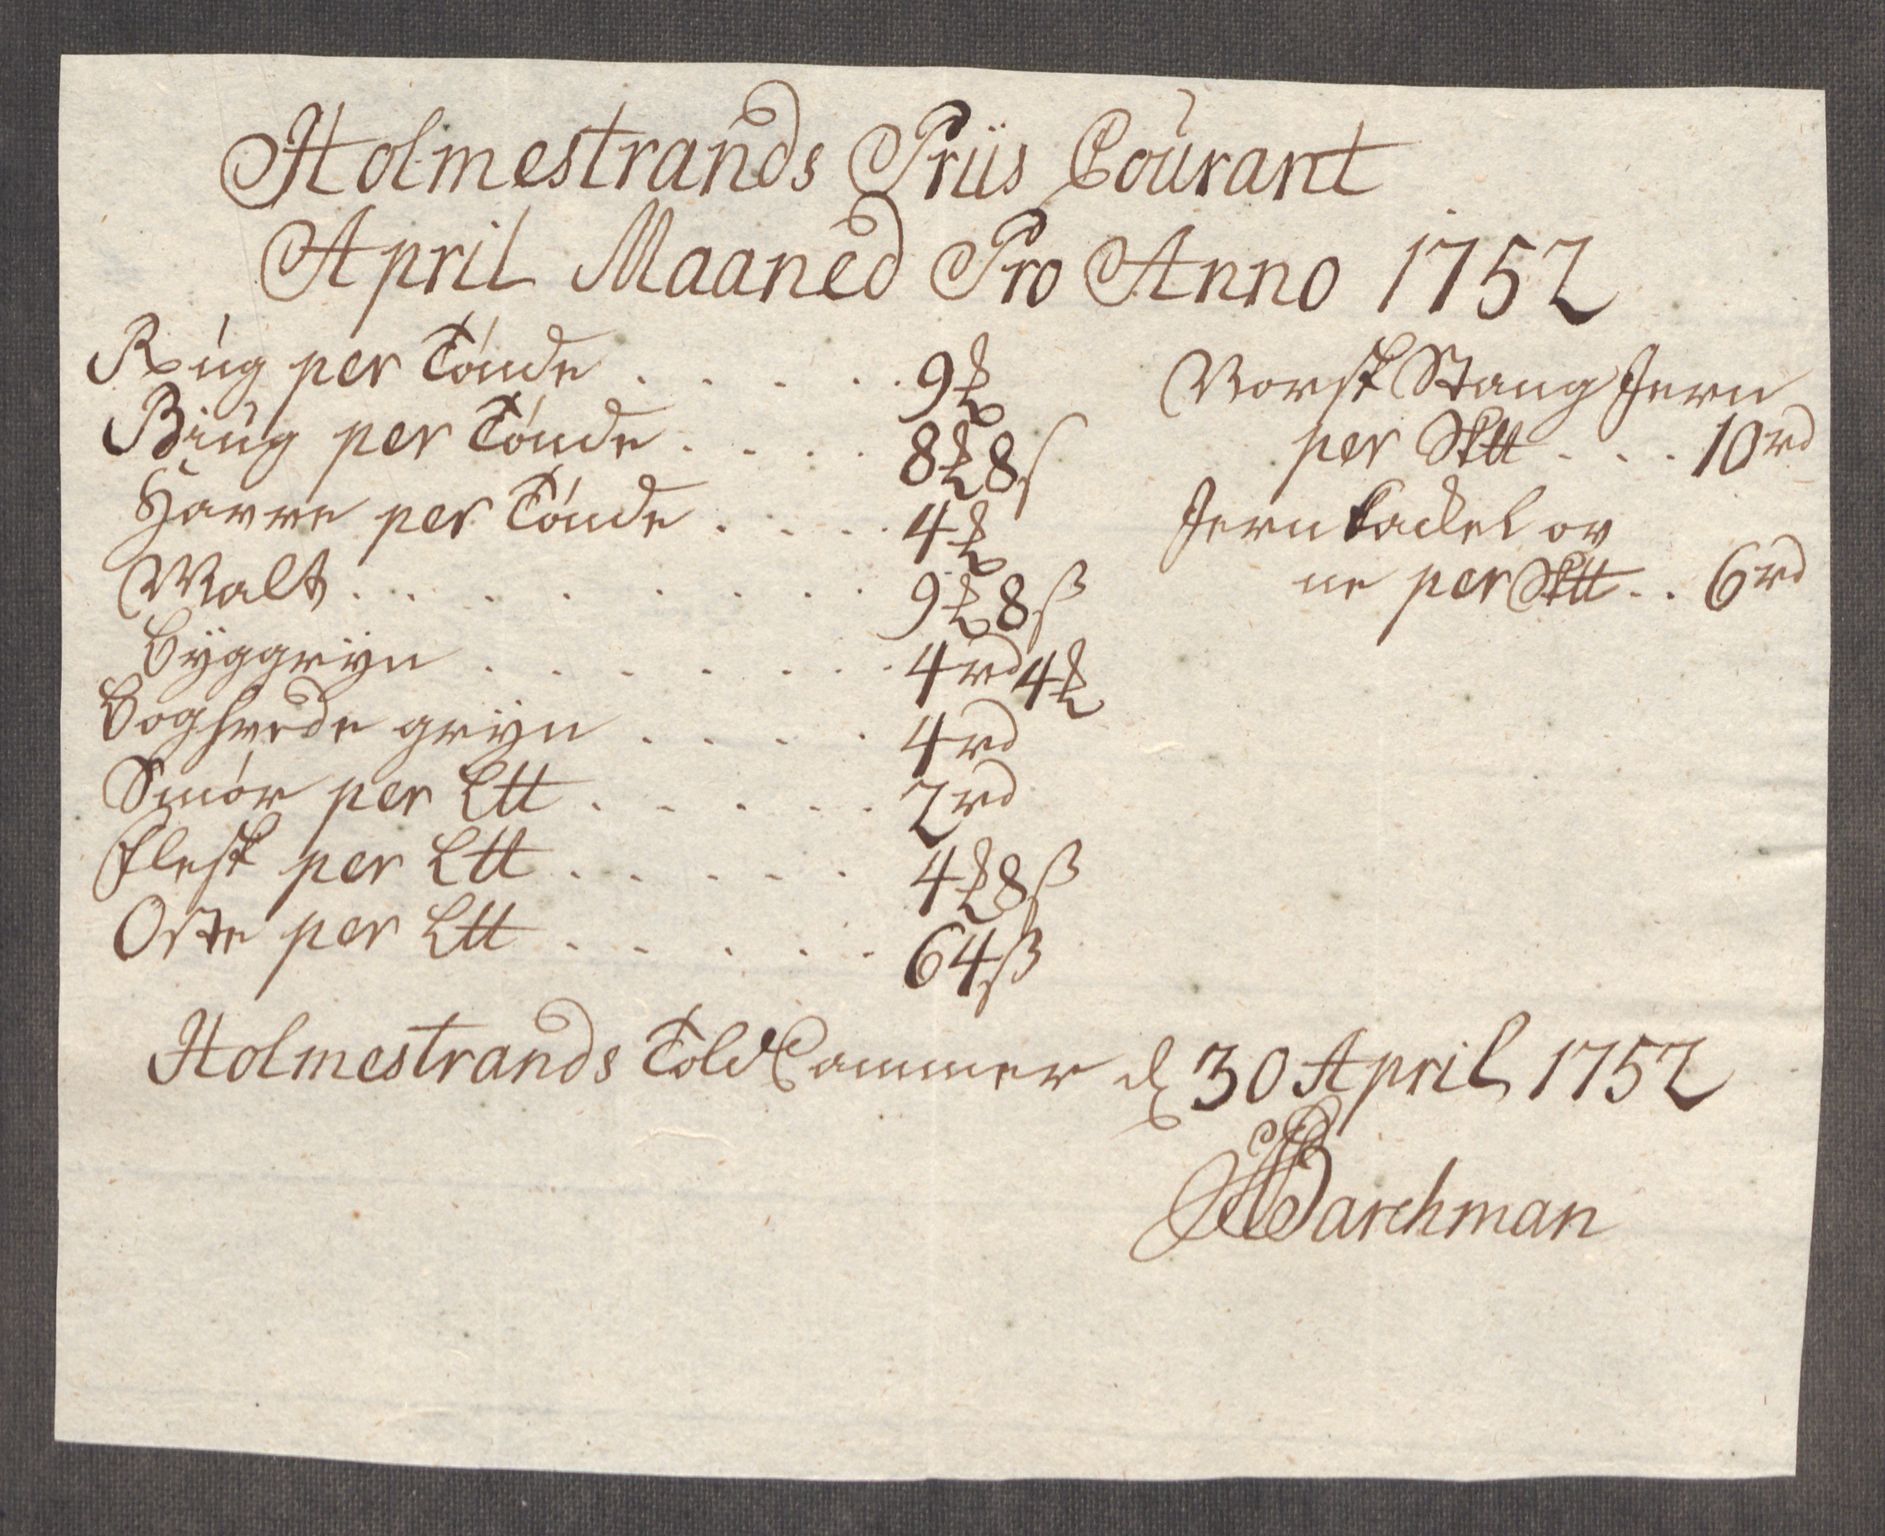 Holmestrands Priis Courant
April Maaned Pro Anno 1752
Rúg per Tónde . . . . . 9 ₰
Biúg per Tónde . . . . 8 ₰ 8 s
Havre per Tónde . . . . 4 ₰
Malt . . . . . . . . 9 ₰ 8 ß
Býggrÿn . . . . . . . 4 rd 4 ₰
Boghvede grÿn . . . . 4 rd
Smór per L℔ . . . . . 2 rd
Flesk per L℔ . . . . . 4 ₰ 8 ß
Oste per L℔ . . . . . 64 ß
Norsk Stang Jern
per Sk℔ . . . 10 rd
Jern Kackel ov
ne per Sk℔ . . 6 rd
Holmestrands Told Cammer d 30 April 1752
Barchman